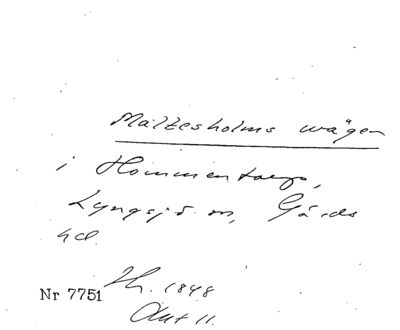 Maltesholms wägen
i Hommentorp,
Lyngsjö sn, Gärds
hd.
Nr 7751 Hh. 1848
Okt 11.